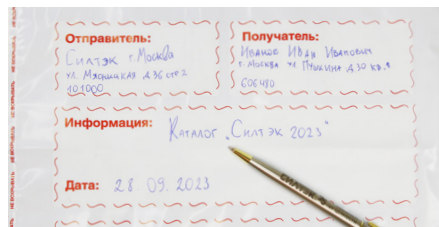 Отправитель:
Силтэк г. Москва
ул. Мясницкая д 36 стр 2
101000
Получатель:
Иванов Иван Иванович
г. Москва ул Пушкина д 30 кв.
606480
Информация:
Каталог „Силтэк 2023"
Дата: 28 09. 2023